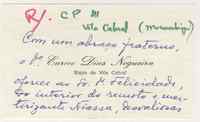 R/. CP M
Vila Cabral (Moçambique)
Com um abraço fraterno,
o Dr. Eurico Dias Nogueira
Bispo de Vila Cabral
oferece ao Sr. D. Felicidade,
do interior do remoto e mar-
tirizante Niassa,